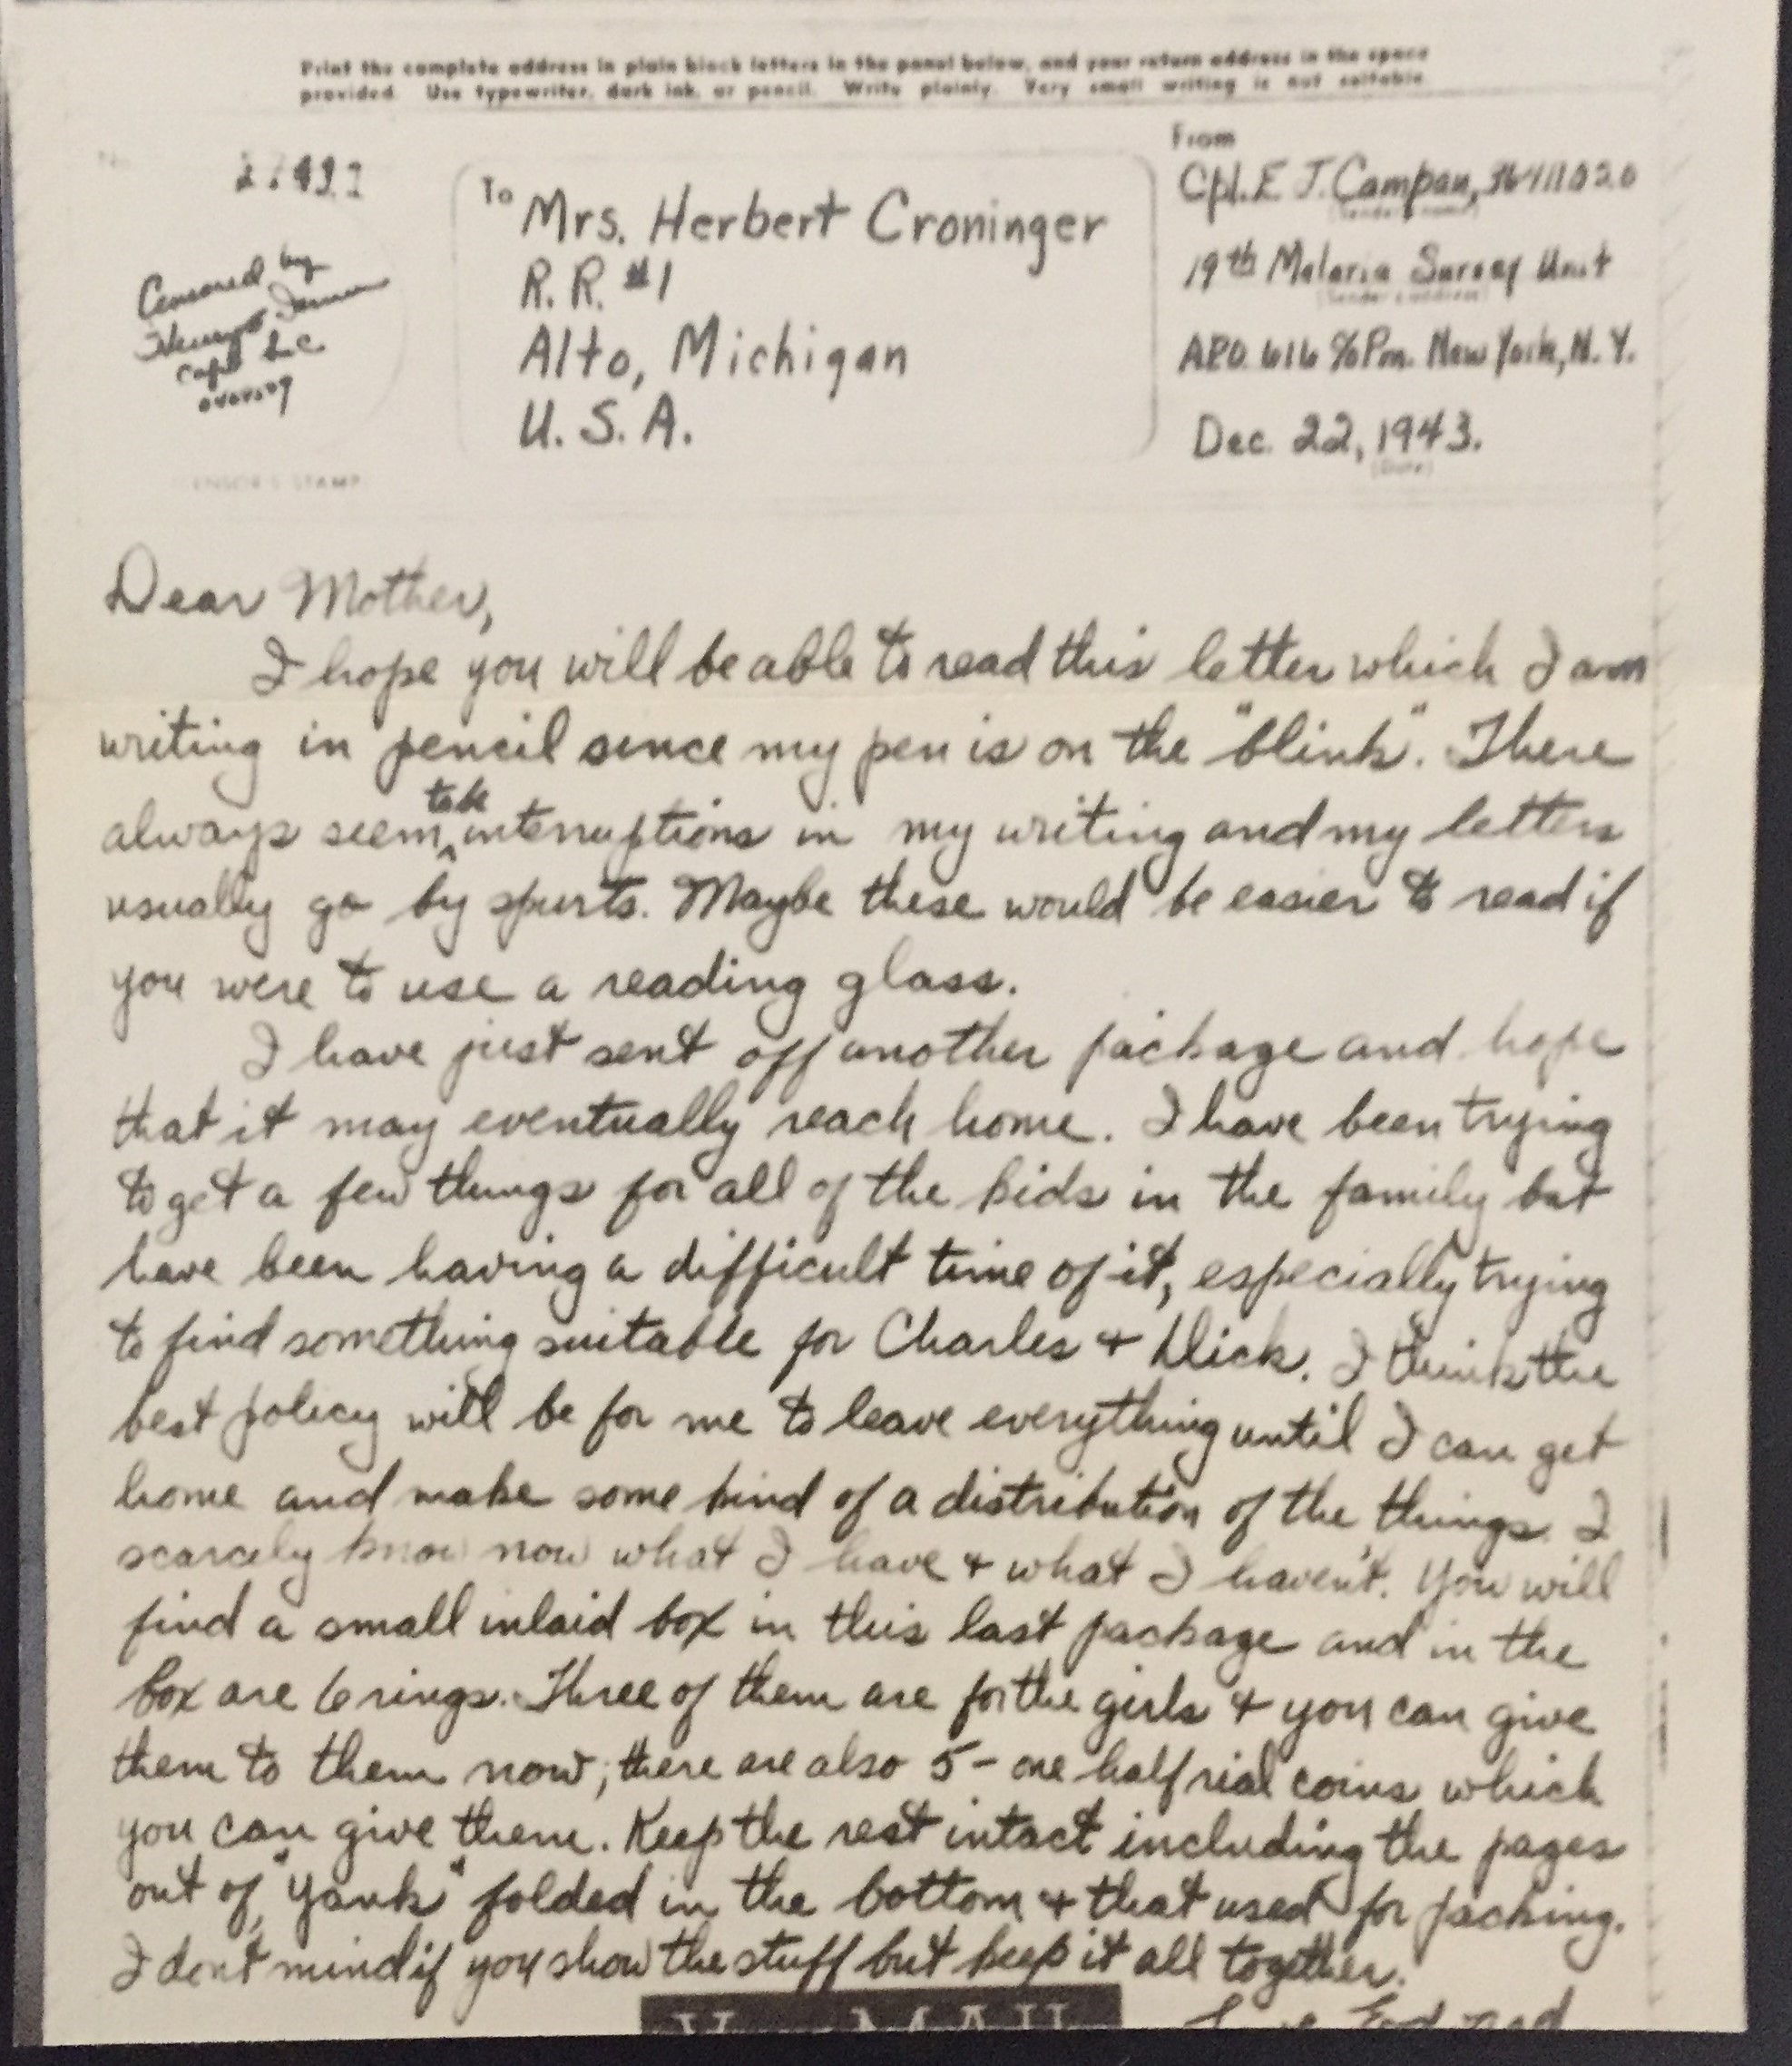 Print the complete address in plain block letters in the panel below, and your return address in the space
provided. Use typewriter, dark ink, or pencil. Write plainly. Very small writing is not suitable.
No.
Censored by
Capt
CENSOR'S STAMP
To
Mrs. Herbert Croninger
R. R. #1
Alto, Michigan
U. S. A.
From
Cpl. E J. Campan, 36411020
(Sender's name)
19th Malaria Survey Unit
(Sender's address)
APO. 616 % Pm. New York, N. Y.
Dec. 22, 1943.
(Date)
Dear Mother,
I hope you will be able to read this letter which I am
writing in pencil since my pen is on the "blink". There
always seem to be interruptions in my writing and my letters
usually go by spurts. Maybe these would be easier to read if
you were to use a reading glass.
I have just sent off another package and hope
that it may eventually reach home. I have been trying
to get a few things for all of the kids in the family but
have been having a difficult time of it, especially trying
to find something suitable for Charles + Dick. I think the
best policy will be for me to leave everything until I can get
home and make some kind of a distribution of the things. I
scarcely know now what I have + what I haven't. You will
find a small inlaid box in this last package and in the
box are 6 rings. Three of them are for the girls + you can give
them to them now; there are also 5 - one half rial coins which
you can give them. Keep the rest intact including the pages
out of "Yank" folded in the bottom + that used for packing.
I don't mind if you show the stuff but keep it all together.
Love Edward
V - MAIL